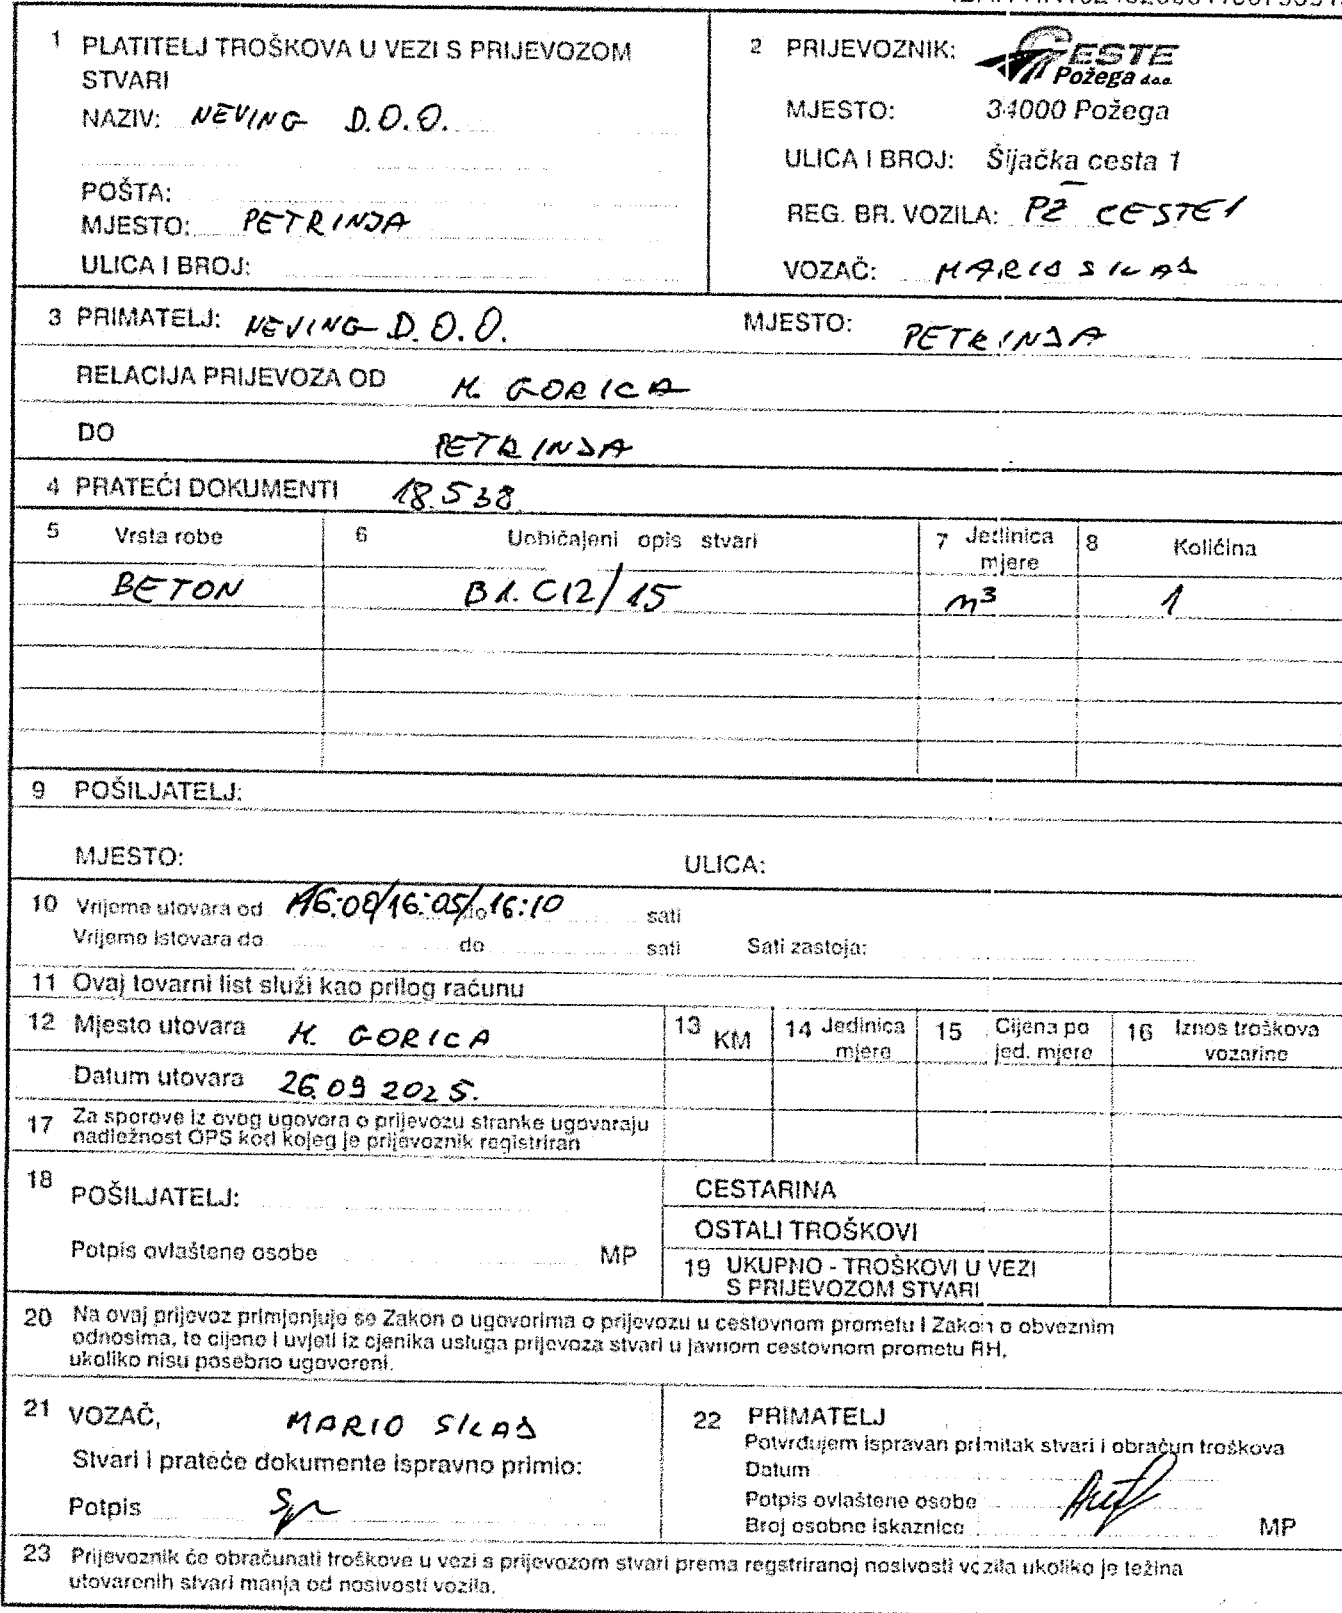 1 PLATITELJ TROŠKOVA U VEZI S PRIJEVOZOM
STVARI
NAZIV: NEVING D.O.O.
POŠTA:
MJESTO: PETRINJA
ULICA I BROJ:
2 PRIJEVOZNIK: CESTE
Požega d.o.o.
MJESTO: 34000 Požega
ULICA I BROJ: Šijačka cesta 1
REG. BR. VOZILA: PŽ CESTE1
VOZAČ: MARIO SILAJ
3 PRIMATELJ: NEVING D.O.O. MJESTO: PETRINJA
RELACIJA PRIJEVOZA OD M. GORICA
DO PETRINJA
4 PRATEĆI DOKUMENTI 18.538
5 Vrsta robe 6 Uobičajeni opis stvari 7 Jedinica mjere 8 Količina
BETON B1. C12/15 m³ 1
9 POŠILJATELJ:
MJESTO: ULICA:
10 Vrijeme utovara od 16:00/16:05/ do 16:10 sati
Vrijeme istovara do do sati Sati zastoja:
11 Ovaj tovarni list služi kao prilog računu
12 Mjesto utovara M. GORICA
Datum utovara 26.09 2025.
13 KM 14 Jedinica mjere 15 Cijena po jed. mjere 16 Iznos troškova vozarine
17 Za sporove iz ovog ugovora o prijevozu stranke ugovaraju
nadležnost OPS kod kojeg je prijevoznik registriran
18 POŠILJATELJ:
Potpis ovlaštene osobe MP
CESTARINA
OSTALI TROŠKOVI
19 UKUPNO - TROŠKOVI U VEZI
S PRIJEVOZOM STVARI
20 Na ovaj prijevoz primjenjuje se Zakon o ugovorima o prijevozu u cestovnom prometu i Zakon o obveznim
odnosima, te cijene i uvjeti iz cjenika usluga prijevoza stvari u javnom cestovnom prometu RH,
ukoliko nisu posebno ugovoreni.
21 VOZAČ, MARIO SILAJ
Stvari i prateće dokumente ispravno primio:
Potpis
22 PRIMATELJ
Potvrđujem ispravan primitak stvari i obračun troškova
Datum
Potpis ovlaštene osobe
Broj osobne iskaznice MP
23 Prijevoznik će obračunati troškove u vezi s prijevozom stvari prema regstriranoj nosivosti vozila ukoliko je težina
utovarenih stvari manja od nosivosti vozila.